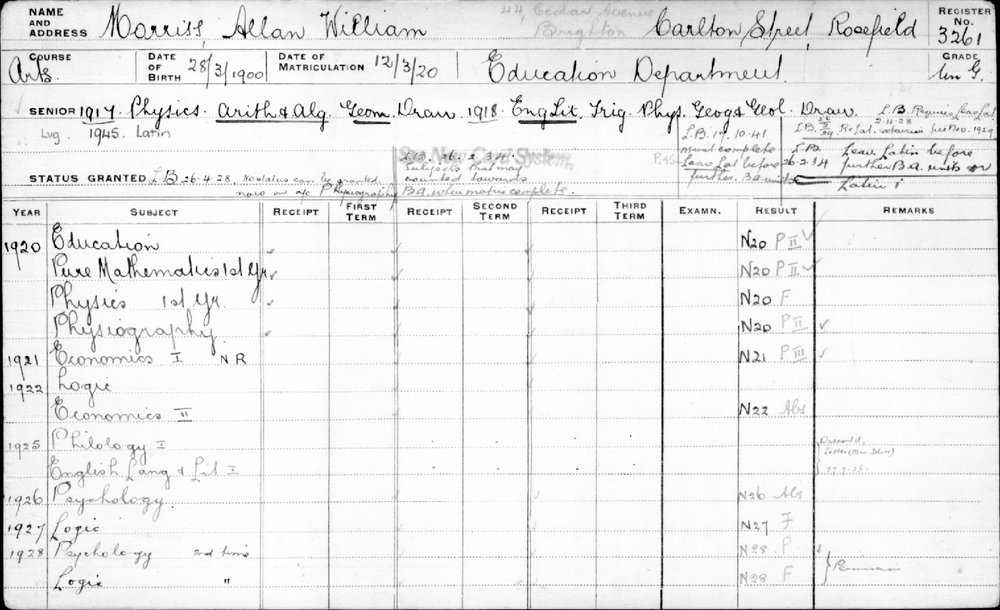 NAME AND ADDRESS Morriss, Allan William 44, Cedar Avenue Brighton Carlton Street, Rosefield REGISTER No. 3261
COURSE Arts. DATE OF BIRTH 28/3/1900 DATE OF MATRICULATION 12/3/20 Education Department. GRADE
SENIOR 1917. Physics. Arith & Alg. Geom Draw. 1918. Eng Lit, Trig. Phys. Geog & Geol. Draw.
Lvg. 1945. Latin
L.B. 17.10.41
must complete
Leav Lat before
further B.a. units
L.B. 26.2.34.
Subjects that may
counted towards
B.a. when matric complete.
L.B.
26.2.34
Leav. Latin before
further B.a. units or
Latin I
STATUS GRANTED L.B. 26.4.28. No status can be granted
now or a/c Physiography
YEAR SUBJECT RECEIPT FIRST TERM RECEIPT SECOND TERM RECEIPT THIRD TERM EXAMN. RESULT REMARKS
1920 Education N20 P II
Pure Mathematics 1st Yr N20 P II
Physics 1st Yr. N20 F
Physiography N20 P II
1921 Economics I N R N21 P III
1922 Logic
Economics II N22 Abs
1925 Philology I
English Lang & Lit I 27.7.25.
1926 Psychology N26 Abs
1927 Logic N27 F
1928 Psychology 2nd time N28 P
Logic " N28 F